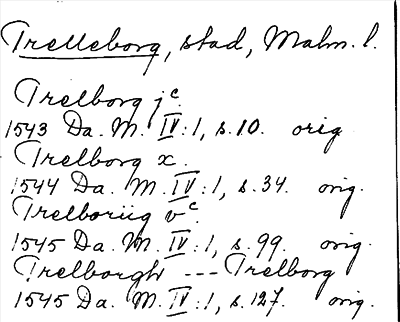 Trelleborg, stad, Malm. l.
Trelborg jc.
1543 Da. M. IV:1, s.10. orig
Trelborg x.
1544 Da. M. IV:1, s.34. orig.
Trelboriig vc.
1545 Da. M. IV:1, s.99. orig.
Trelborgh --- Trelborg
1545 Da. M. IV:1, s.127. orig.